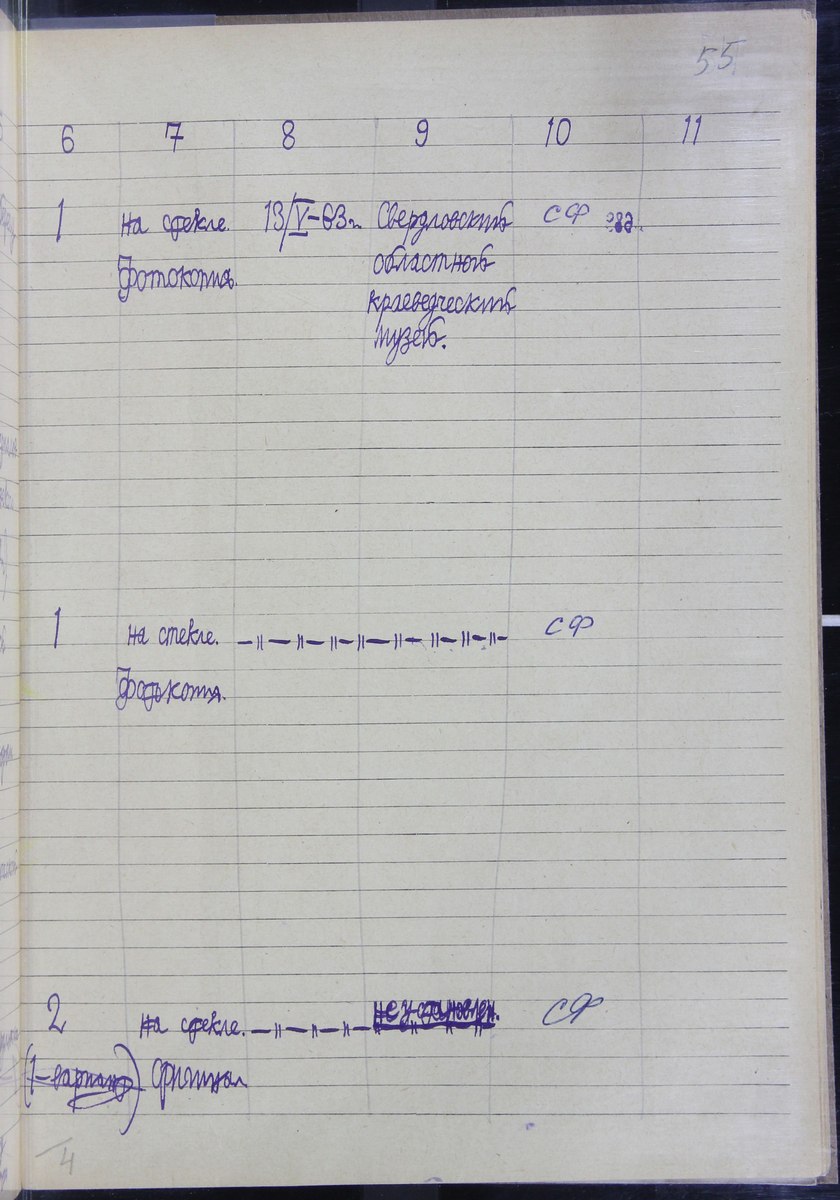 55
6 7 8 9 10 11
1 на стекле. 13/V-63г. Свердловский СФ
Фотокопия. областной
краеведческий
музей.
1 на стекле. —〃—〃—〃—〃—〃—〃—〃—〃— СФ
Фотокопия.
2 на стекле. —〃—〃—〃— не установлен. СФ
(1-вариант) Оригинал
4